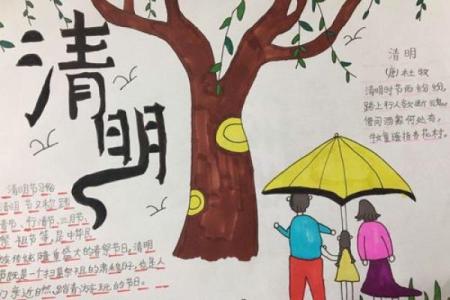 清明
清明
(唐)杜牧
清明时节雨纷纷,
路上行人欲断魂。
借问酒家何处有,
牧童遥指杏花村。
清明节习俗
清明节又称踏
青节、行清节、三月节、
祭祖节等,是中华民
族传统隆重盛大的春祭节日。清明
节既是一个扫墓祭祖的肃穆节,也是人
们亲近自然、踏青游玩的节日。